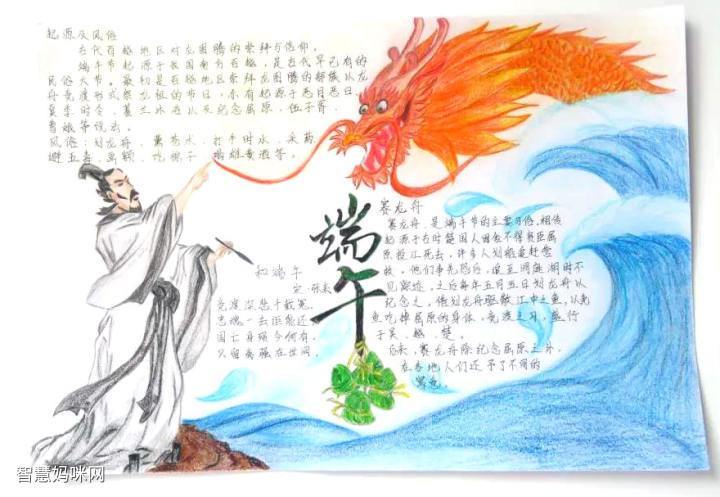 起源及风俗
古代百越地区对龙图腾的崇拜与信仰。
端午节起源于我国南方百越，是古代早已有的
风俗大节。最初是百越地区崇拜龙图腾的部族以龙
舟竞渡形式祭龙祖的节日，亦有起源于恶月恶日、
夏季时令、以及纪念屈原、伍子胥、
曹娥等说法。
风俗：划龙舟、熏苍术、打午时水、采药
避五毒、画额、吃粽子、雄黄酒等。
赛龙舟
赛龙舟，是端午节的主要习俗，相传
起源于古时楚国人因舍不得贤臣屈
原投江死去，许多人划船追赶拯
救。他们争先恐后，追至洞庭湖时不
见踪迹，之后每年五月五日划龙舟以
纪念之。借划龙舟驱散江中之鱼，以免
鱼吃掉屈原的身体。竞渡之习，盛行
于吴、越、楚。
后来，赛龙舟除纪念屈原之外，
在各地人们还予了不同的
寓意。
端午
和端午
宋·张耒
竞渡深悲千载冤，
忠魂一去讵能还。
国亡身殒今何有，
只留离骚在世间。
智慧妈咪网